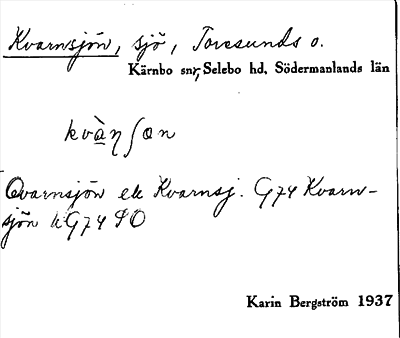 Kvarnsjön, sjö, Toresunds o.
Kärnbo snr, Selebo hd, Södermanlands län
kvàn̡ʃɑn
Qvarnsjön ell Kvarnsj. G74 Kvarn-
sjön G74 SO
Karin Bergström 1937